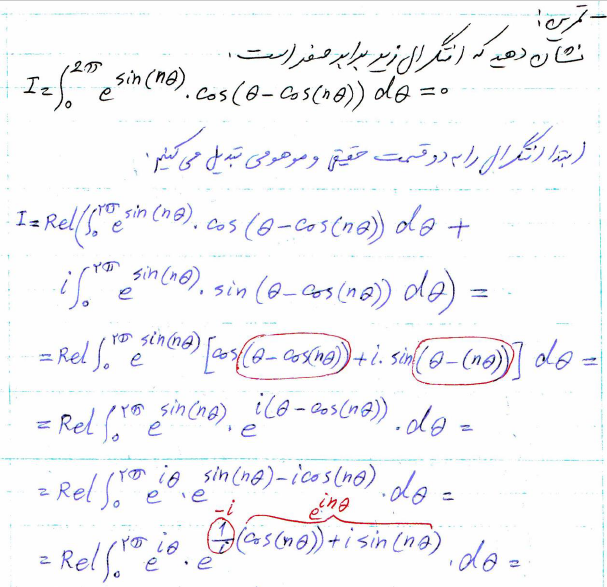 - تمرین:
نشان دهید که انتگرال زیر برابر صفر است.
I=∫₀^{2π} e^{sin(nθ)}.cos(θ-cos(nθ)) dθ=0
ابتدا انتگرال را به دو قسمت حقیقی و موهومی تبدیل می کنیم.
I=Rel(∫₀^{۲π} e^{sin(nθ)}.cos(θ-cos(nθ)) dθ +
i∫₀^{۲π} e^{sin(nθ)}.sin(θ-cos(nθ)) dθ) =
=Rel∫₀^{۲π} e^{sin(nθ)}[cos(θ-cos(nθ))+i.sin(θ-(nθ))] dθ =
=Rel∫₀^{۲π} e^{sin(nθ)}.e^{i(θ-cos(nθ))}.dθ =
=Rel∫₀^{۲π} e^{iθ}.e^{sin(nθ)-icos(nθ)}.dθ =
-i e^{inθ}
=Rel∫₀^{۲π} e^{iθ}.e^{1/i(cos(nθ))+isin(nθ)}.dθ =